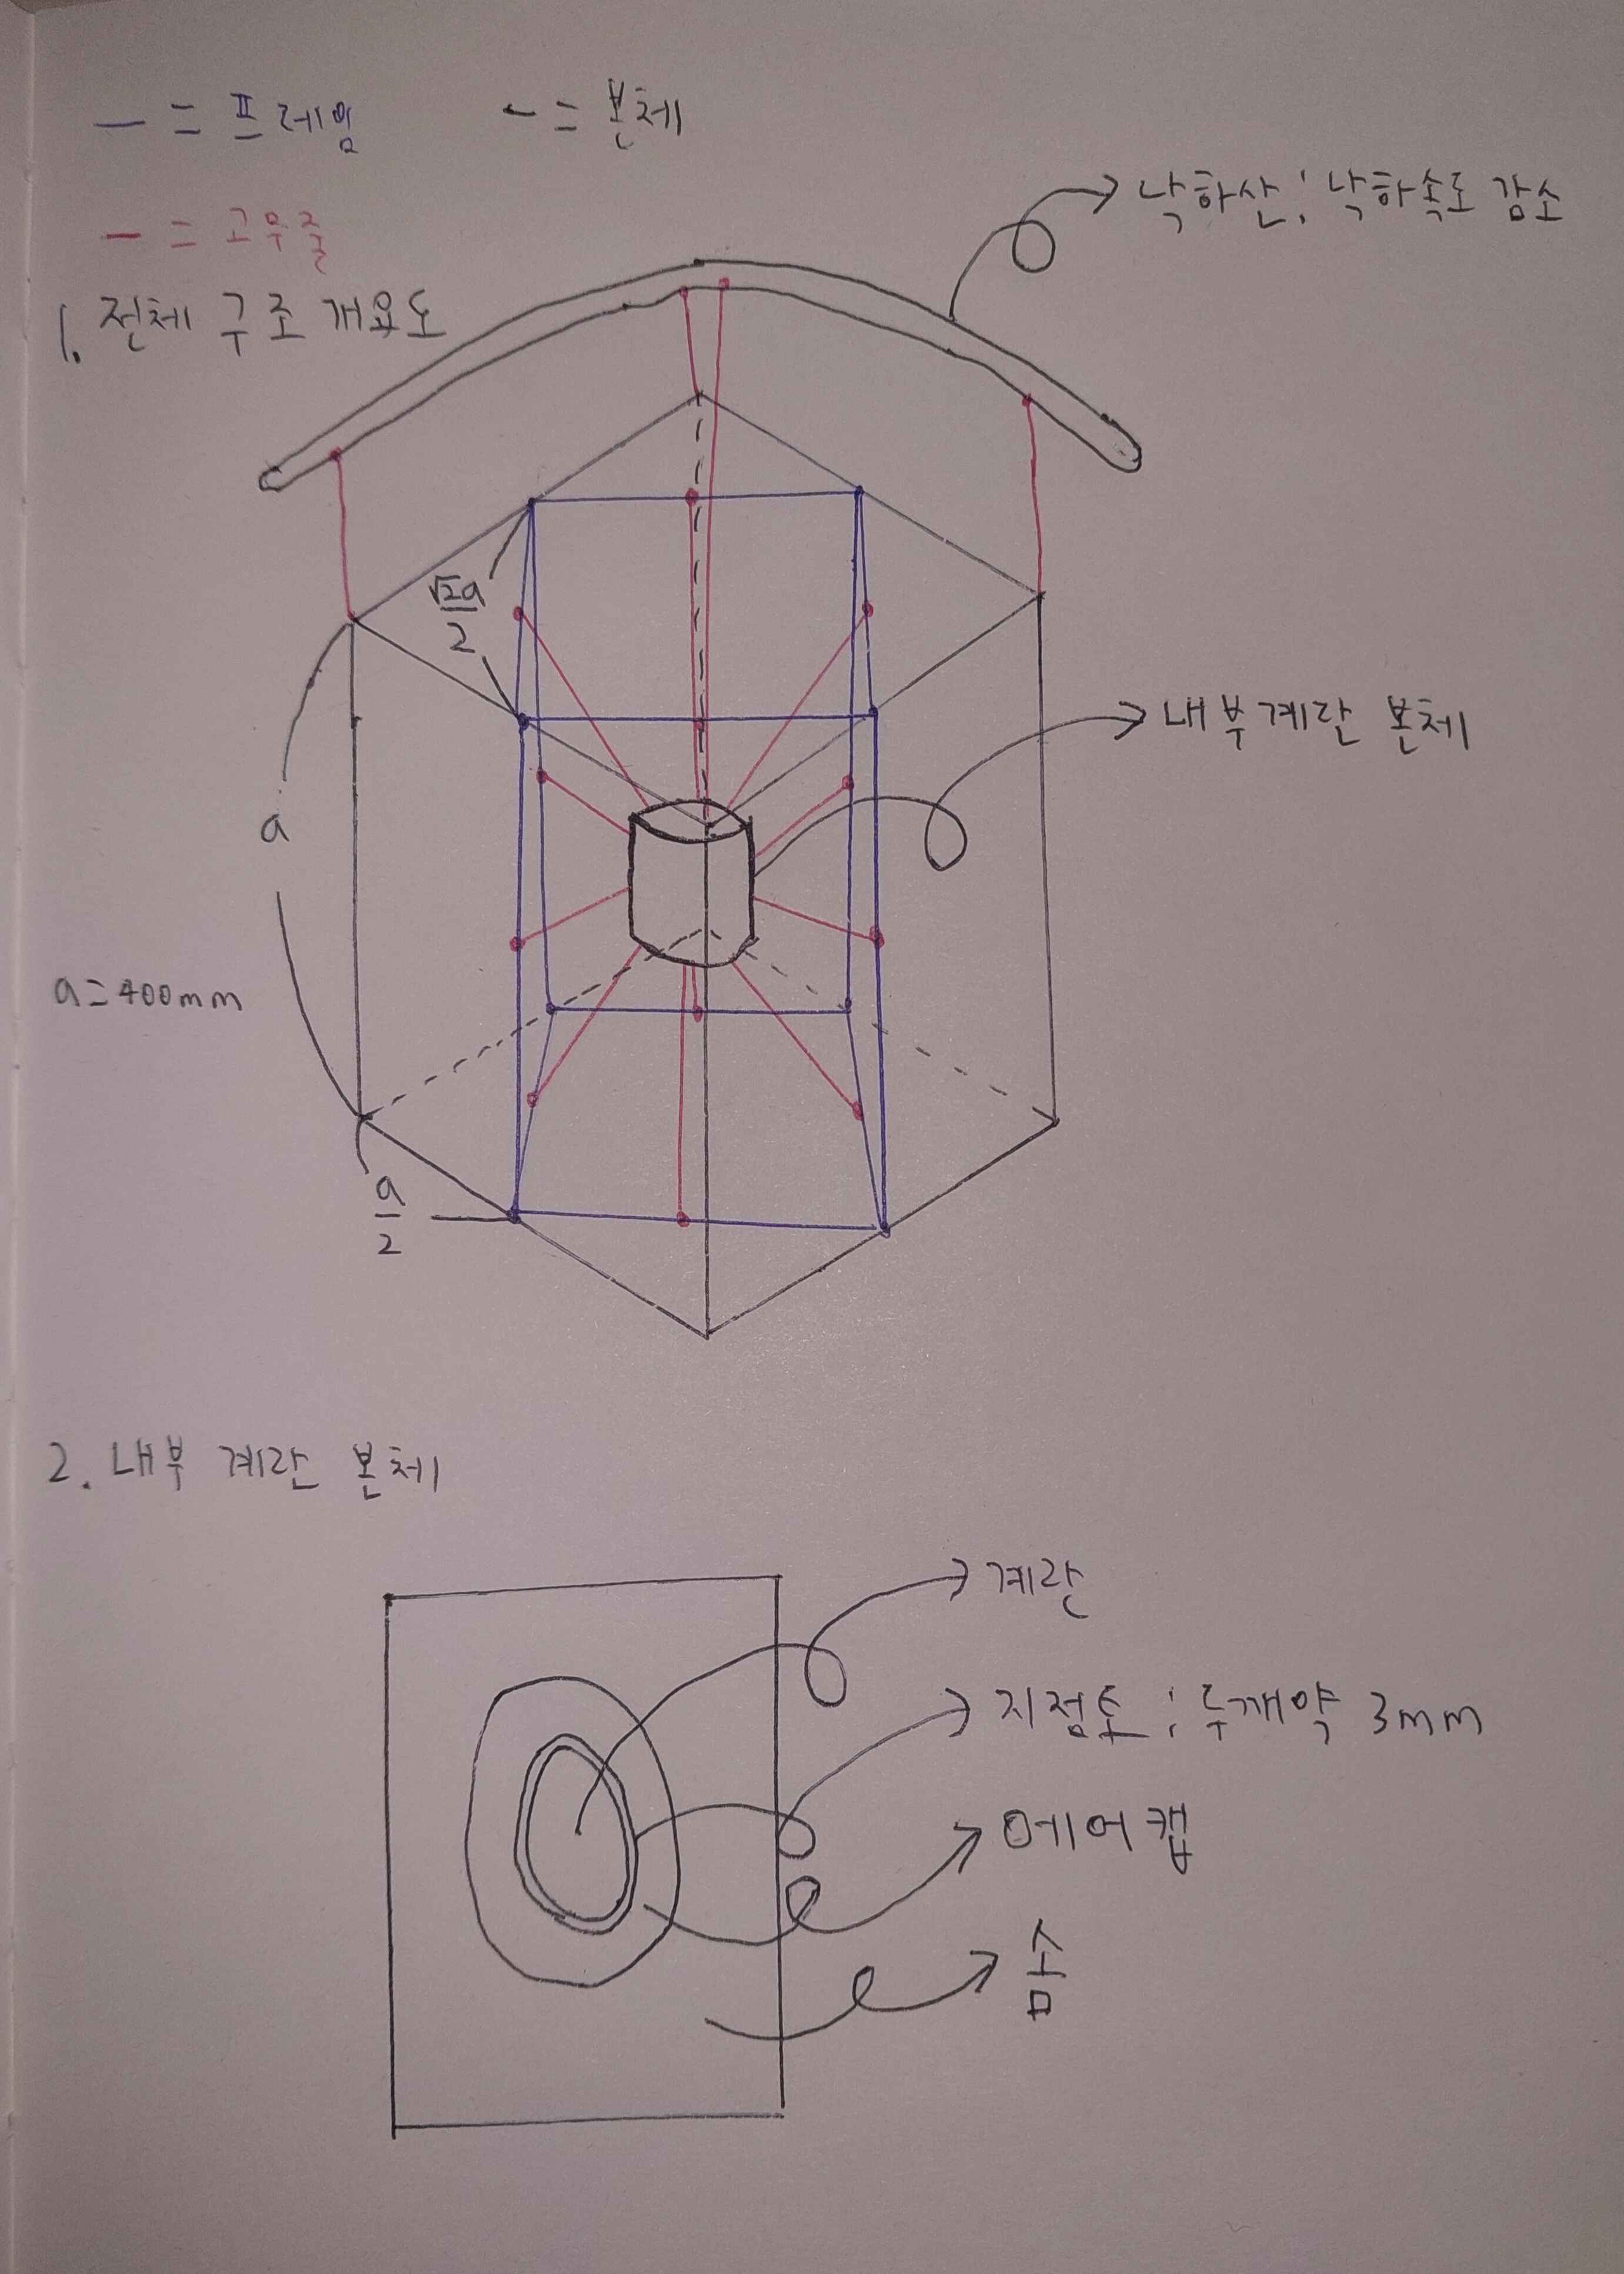 — = 프레임 - = 본체
— = 고무줄
1. 전체 구조 개요도
낙하산: 낙하속도 감소
√2a
2
내부계란 본체
a
a=400mm
a
2
2. 내부 계란 본체
계란
지점토: 두께약 3mm
에어캡
솜